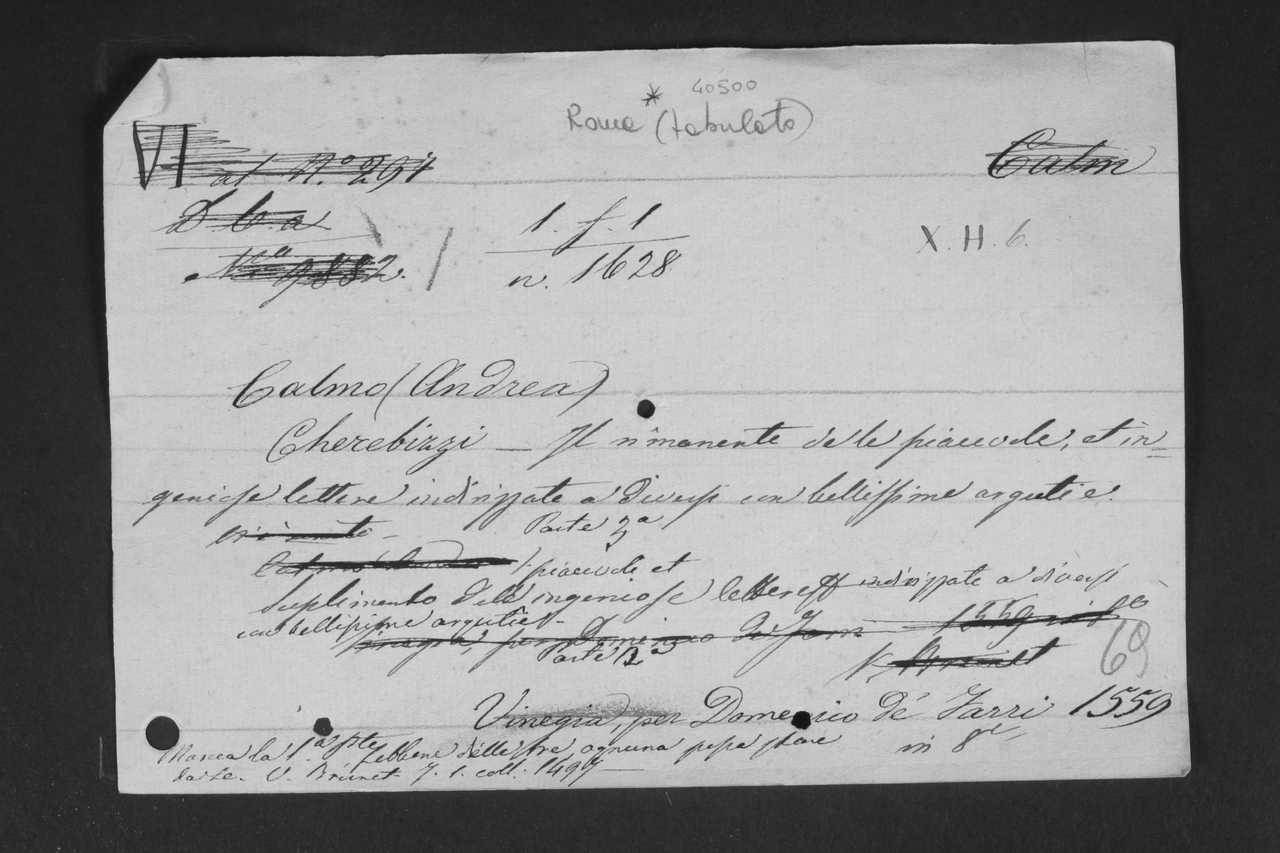 40500
*
Roma (tabulato)
VI
at N.º 291
Calm
D b. a
1. f. 1
X. H. 6.
N.º 9882.
n. 1628
Calmo (Andrea)
Cherebizzi — Il rimanente de le piacevole, et in=
geniose lettere indirizzate a diversi con bellissime argutie.
Parte 3ª
piacevole et
Suplimento delle ingeniose lettere indirizzate a diversi
con bellissime argutie -
Vinegia, per Domenico de' Farri 1559
Parte 2ª
V. Brunet
69
Vinegia, per Domenico de' Farri 1559
in 8º
Manca la 1ª pte sebbene delle tre ognuna possa stare
da se. V. Brunet T. 1. coll. 1497 —